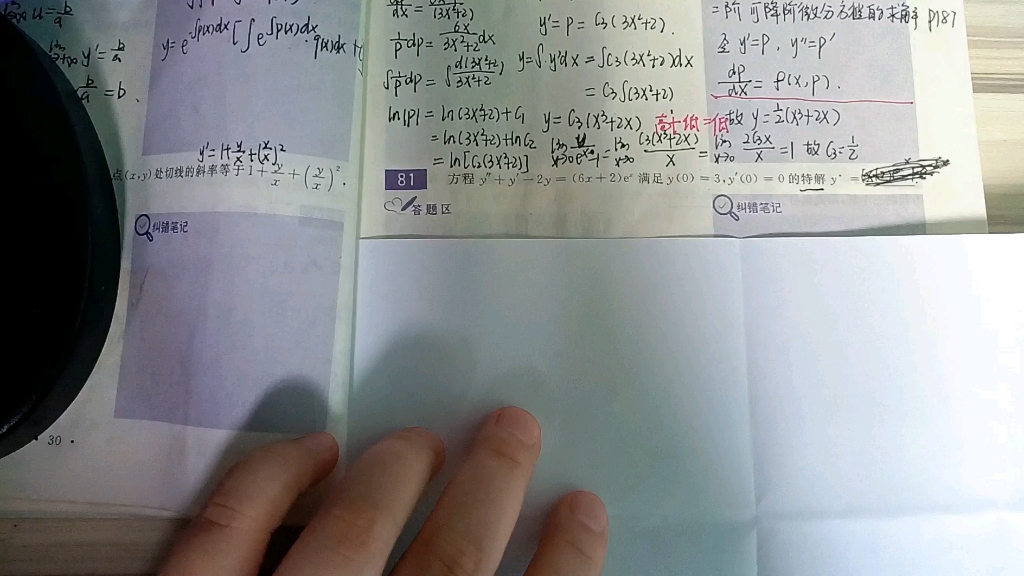 y'=b/a
b/a=b.
y=e^-∫p(x)dx[∫e^∫p(x)dx q(x)dx+
y'=1+y/x+(y/x)²
点(x,y)处切线的斜率等于1+y/x+(y/x)²,
纠错笔记
· 30 ·
1/p dp=6x/3x²+2 dx
∫1/p dp=∫d(3x²+2)/3x²+2
ln|p|=ln(3x²+2)+C₁
=ln(3x²+2)+lnC₂
=ln[C₂(3x²+2)]
y'=p=C₃(3x²+2).
y=∫y'dx=∫C₃(3x²+2)dx
=C₃∫(3x²+2)
y=C₃(x³+2x)
高+低=低
lim x→0 y/eˣ-1=lim x→0 C₃(x³+2x)/x=lim x→0 2C₃x/x=1 故C₃=1/2
二阶可降阶微分方程的求解 P187
至y'=P,y''=P'
dp/dx=f(x,p).
故y=1/2(x³+2x)
81 方程y''+y'-2y=(6x+2)eˣ满足y(0)=3,y'(0)=0的特解y*=
答题区
纠错笔记